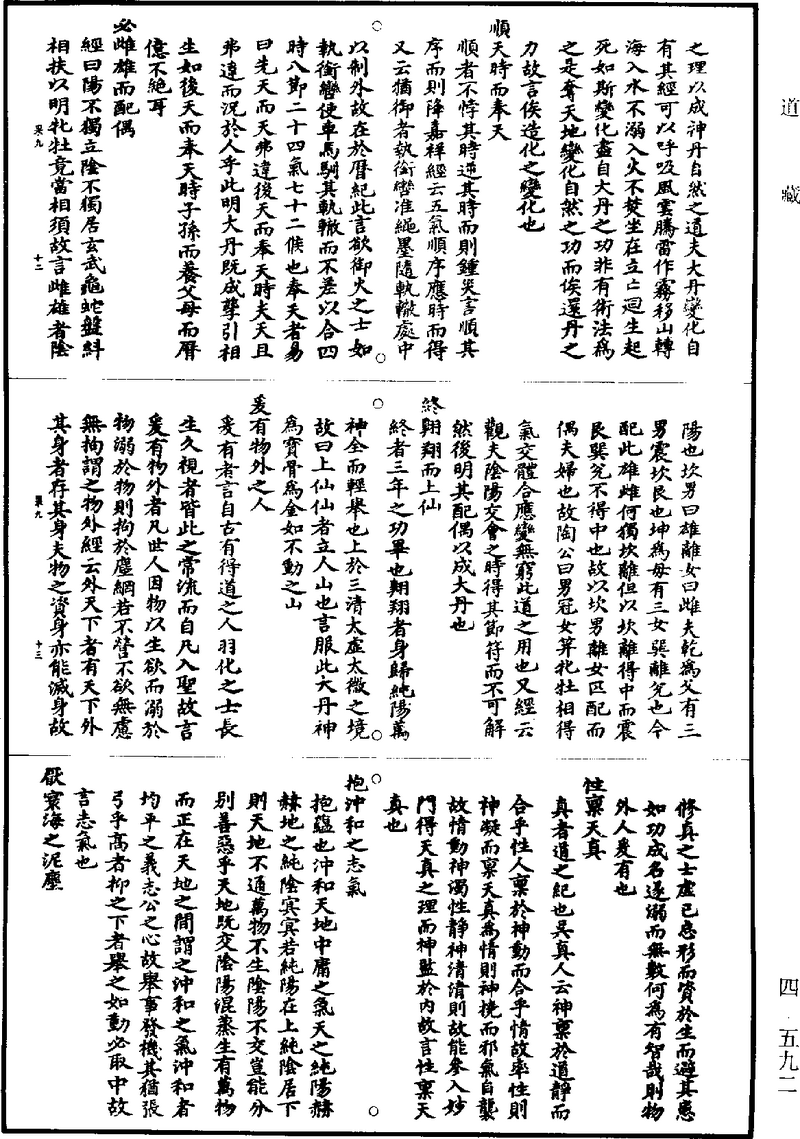 道藏
之理以成神丹自然之道夫大丹變化自
有其經可以呼吸風雲騰雷作霧移山轉
海入水不溺入火不焚坐在立亡迴生起
死如斯變化盡自大丹之功非有術法爲
之是奪天地變化自然之功而俟還丹之
力故言俟造化之變化也
順天時而奉天
順者不悖其時逆其時而則鍾災言順其
序而則降嘉祥經云五氣順序應時而得
又云猶御者執銜轡准繩墨隨軌轍處中
以制外故在於曆紀此言欲御火之士如
執銜轡使車馬馴其軌轍而不差以合四
時八節二十四氣七十二候也奉天者易
曰先天而天弗違後天而奉天時夫天且
弗違而況於人乎此明大丹既成孳引相
生如後天而奉天時子孫而養父母而曆
億不絶耳
必雌雄而配偶
經曰陽不獨立陰不獨居玄武龜蛇盤糾
相扶以明牝牡竟當相須故言雌雄者陰
陽也坎男曰雄離女曰雌夫乾爲父有三
男震坎艮也坤爲母有三女巽離兌也今
配此雄雌何獨坎離但以坎離得中而震
艮巽兌不得中也故以坎男離女匹配而
偶夫婦也故陶公曰男冠女筓牝牡相得
氣交體合應變無窮此道之用也又經云
觀夫陰陽交會之時得其節符而不可解
然後明其配偶以成大丹也
終翔翔而上仙
終者三年之功畢也翔翔者身歸純陽萬
神全而輕舉也上於三清太虛太微之境
故曰上仙仙者立人山也言服此大丹神
爲寶骨爲金如不動之山
爰有物外之人
爰有者言自古有得道之人羽化之士長
生久視者皆此之常流而自凡入聖故言
爰有物外者凡世人因物以生欲而溺於
物溺於物則拘於塵網若不營不欲無慮
無拘謂之物外經云外天下者有天下外
其身者存其身夫物之資身亦能滅身故
修真之士虛己忘形而資於生而避其患
如功成名遂溺而無數何爲有智哉則物
外人爰有也
性稟天真
真者道之紀也吳真人云神稟於道靜而
合乎性人稟於神動而合乎情故率性則
神凝而稟天真爲情則神撓而邪氣自襲
故情動神濁性靜神清清則故能參入妙
門得天真之理而神監於內故言性稟天
真也
抱沖和之志氣
抱蘊也沖和天地中庸之氣天之純陽赫
赫地之純陰宾宾若純陽在上純陰居下
則天地不通萬物不生陰陽不交豈能分
別善惡乎天地既交陰陽混蒸生有萬物
而正在天地之間謂之沖和之氣沖和者
均平之義志公之心故舉事發機其猶張
弓乎高者抑之下者舉之如動必取中故
言志氣也
厭寰海之泥塵
杲九
十二
杲九
十三
四·五九二